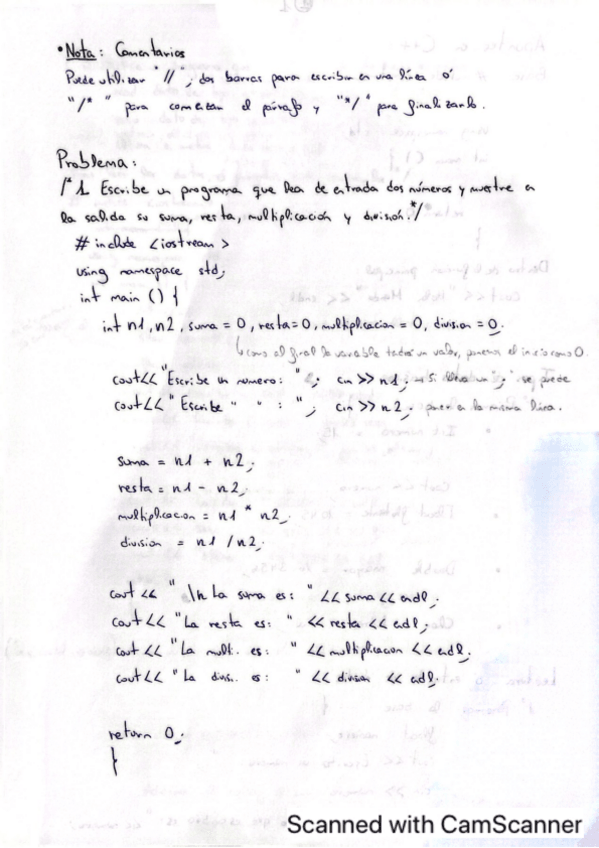 • Nota: Comentarios
Puede utilizar "//", dos barras para escribir en una línea ó
"/*" para comenzar el párrafo y "*/" para finalizarlo.
Problema:
/* 1. Escribe un programa que lea de entrada dos números y muestre en
la salida su suma, resta, multiplicación y división.*/
# include <iostream>
using namespace std;
int main () {
int n1, n2, suma = 0, resta=0, multiplicacion = 0, division = 0;
como al final la variable tendrá un valor, ponemos el inicio como 0.
cout<<"Escribe un numero: "; cin >> n1; → Si lleva un ; se puede
cout<<"Escribe " " : "; cin >> n2; poner en la misma línea.
suma = n1 + n2;
resta = n1 - n2;
multiplicacion = n1 * n2;
division = n1 / n2;
cout << " \n La suma es: " << suma << endl;
cout << "La resta es: " << resta << endl;
cout << "La multi. es: " << multiplicacion << endl;
cout << "La divis. es: " << division << endl;
return 0;
}
Scanned with CamScanner